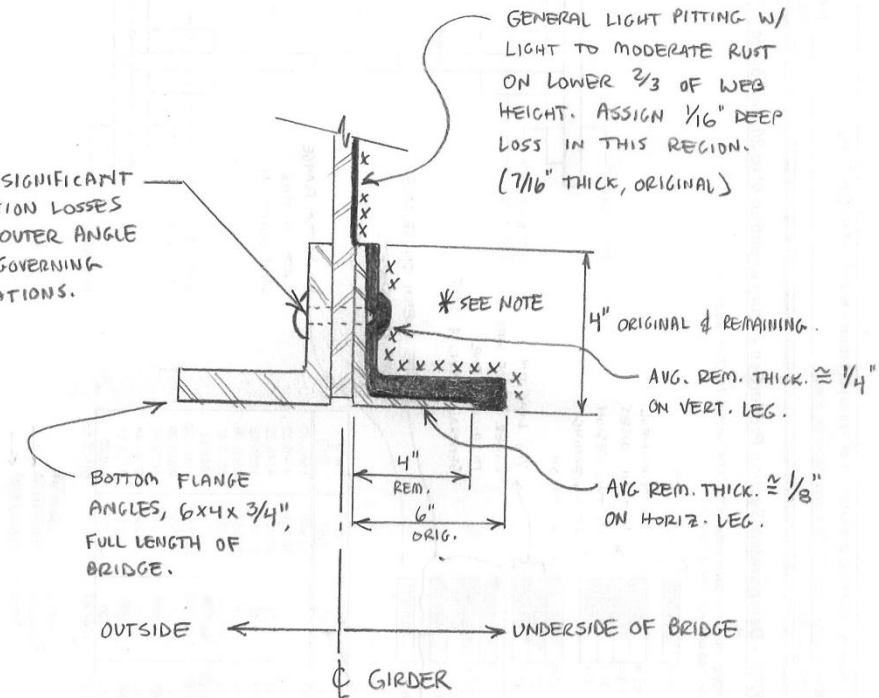 GENERAL LIGHT PITTING W/
LIGHT TO MODERATE RUST
ON LOWER 2/3 OF WEB
HEIGHT. ASSIGN 1/16" DEEP
LOSS IN THIS REGION.
(7/16" THICK, ORIGINAL)
SIGNIFICANT
TION LOSSES
OUTER ANGLE
GOVERNING
ATIONS.
* SEE NOTE
4" ORIGINAL & REMAINING.
AVG. REM. THICK. ≅ 1/4"
ON VERT. LEG.
4"
REM.
6"
ORIG.
AVG REM. THICK. ≅ 1/8"
ON HORIZ. LEG.
BOTTOM FLANGE
ANGLES, 6x4x 3/4",
FULL LENGTH OF
BRIDGE.
OUTSIDE
UNDERSIDE OF BRIDGE
℄ GIRDER